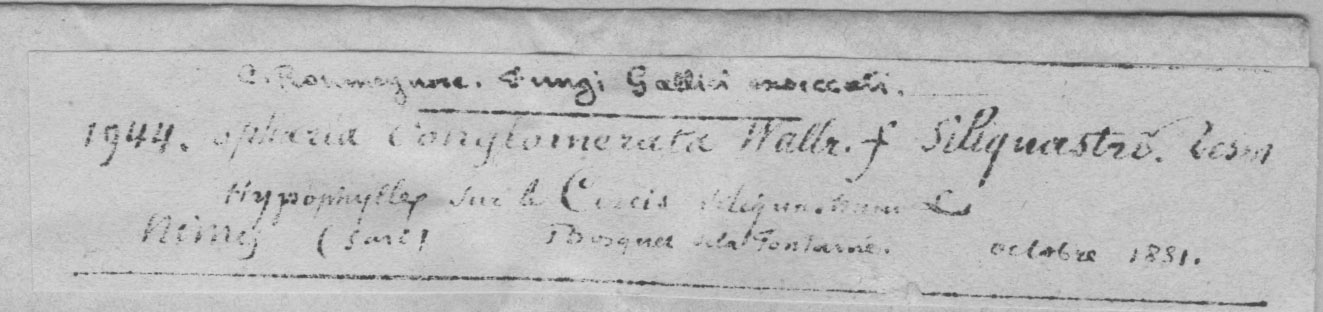 C. Roumeguère. Fungi Gallici exsiccati.
1944. Sphaeria Conglomerata Wallr. f Siliquastri. Desm
Hypophylle sur le Cercis siliquastrum L
Nimes (Gard) Bosquet de la Fontaine. octobre 1881.